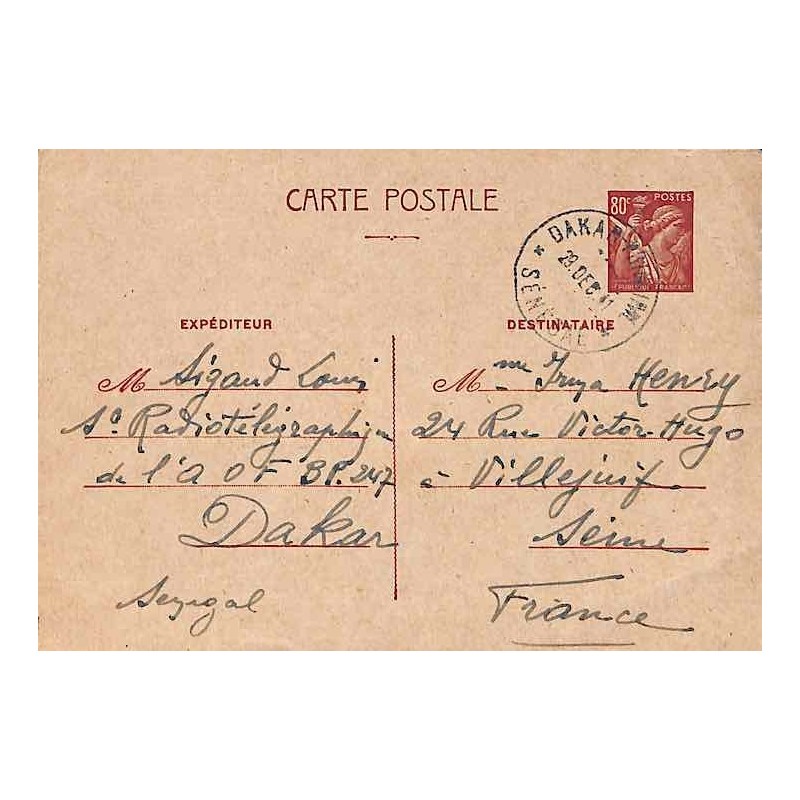 CARTE POSTALE
80c POSTES
RÉPUBLIQUE FRANÇAISE
DAKAR
29. DEC 41
SÉNÉGAL
EXPÉDITEUR
M Sigaud Louis
Sce Radiotélégraphique
de l'A O F B.P. 247
Dakar
Senegal
DESTINATAIRE
Mme Henry
24 Rue Victor-Hugo
à Villejuif
Seine
France